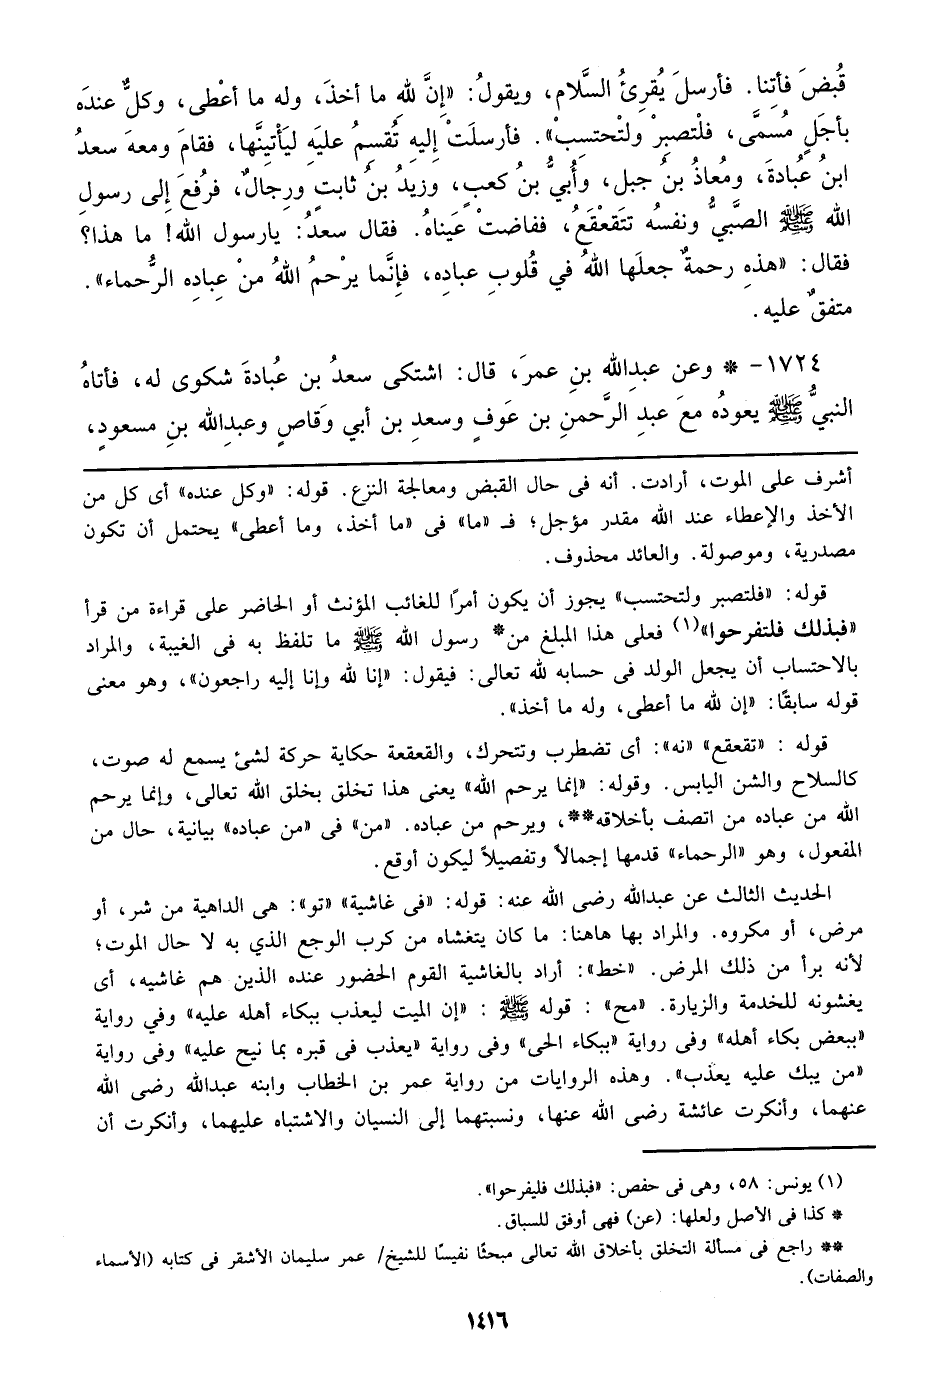 قُبضَ فأتنا. فأرسلَ يُقرِئُ السَّلام، ويقولُ: «إنَّ للهِ ما أخذَ، وله ما أعْطى، وكلٌّ عندَه
بأجَلٍ مُسمَّى، فلْتصبِرْ ولتْحتسِبْ». فأرسلَتْ إليهِ تُقسِمُ عليهِ ليَأْتينَّها، فقامَ ومعهَ سعدُ
ابنُ عُبادةَ، ومُعاذُ بنُ جبل، وأُبيُّ بنُ كعبٍ، وزيدُ بنُ ثابتٍ ورِجالٌ، فرُفعَ إلى رسولِ
الله ﷺ الصَّبيُّ ونفسُه تتَقعْقَعُ، ففاضتْ عَيناهُ. فقال سعدُ: يارسول الله! ما هذا؟
فقال: «هذهِ رحمةٌ جعلَها اللهُ في قُلوبِ عبادِه، فإنَّما يرْحمُ اللهُ منْ عِبادِه الرُّحماء».
متفقٌ عليه.
١٧٢٤- * وعن عبدِالله بنِ عمرَ، قال: اشتكى سعدُ بن عُبادةَ شكوى له، فأتاهُ
النبيُّ ﷺ يعودُه معَ عبدِ الرَّحمنِ بن عَوفٍ وسعدِ بن أبي وَقاصٍ وعبدِالله بنِ مسعودٍ،
أشرف على الموت، أرادت. أنه فى حال القبض ومعالجة النزع. قوله: «وكل عنده» أى كل من
الأخذ والإعطاء عند الله مقدر مؤجل؛ فـ «ما» فى «ما أخذ، وما أعطى» يحتمل أن تكون
مصدرية، وموصولة. والعائد محذوف.
قوله: «فلتصبر ولتحتسب» يجوز أن يكون أمرًا للغائب المؤنث أو الحاضر على قراءة من قرأ
«فبذلك فلتفرحوا»(١) فعلى هذا المبلغ من* رسول الله ﷺ ما تلفظ به فى الغيبة، والمراد
بالاحتساب أن يجعل الولد فى حسابه لله تعالى: فيقول: «إنا لله وإنا إليه راجعون»، وهو معنى
قوله سابقًا: «إن لله ما أعطى، وله ما أخذ».
قوله : «تقعقع» «نه»: أى تضطرب وتتحرك، والقعقعة حكاية حركة لشئ يسمع له صوت،
كالسلاح والشن اليابس. وقوله: «إنما يرحم الله» يعنى هذا تخلق بخلق الله تعالى، وإنما يرحم
الله من عباده من اتصف بأخلاقه**، ويرحم من عباده. «من» فى «من عباده» بيانية، حال من
المفعول، وهو «الرحماء» قدمها إجمالاً وتفصيلاً ليكون أوقع.
الحديث الثالث عن عبدالله رضى الله عنه: قوله: «فى غاشية» «تو»: هى الداهية من شر، أو
مرض، أو مكروه. والمراد بها هاهنا: ما كان يتغشاه من كرب الوجع الذي به لا حال الموت؛
لأنه برأ من ذلك المرض. «خط»: أراد بالغاشية القوم الحضور عنده الذين هم غاشيه، أى
يغشونه للخدمة والزيارة. «مح» : قوله ﷺ : «إن الميت ليعذب ببكاء أهله عليه» وفي رواية
«ببعض بكاء أهله» وفى رواية «ببكاء الحى» وفى رواية «يعذب فى قبره بما نيح عليه» وفى رواية
«من يبك عليه يعذب». وهذه الروايات من رواية عمر بن الخطاب وابنه عبدالله رضى الله
عنهما، وأنكرت عائشة رضى الله عنها، ونسبتهما إلى النسيان والاشتباه عليهما، وأنكرت أن
(١) يونس: ٥٨، وهى فى حفص: «فبذلك فليفرحوا».
* كذا فى الأصل ولعلها: (عن) فهى أوفق للسباق.
** راجع فى مسألة التخلق بأخلاق الله تعالى مبحثًا نفيسًا للشيخ/ عمر سليمان الأشقر فى كتابه (الأسماء
والصفات).
١٤١٦